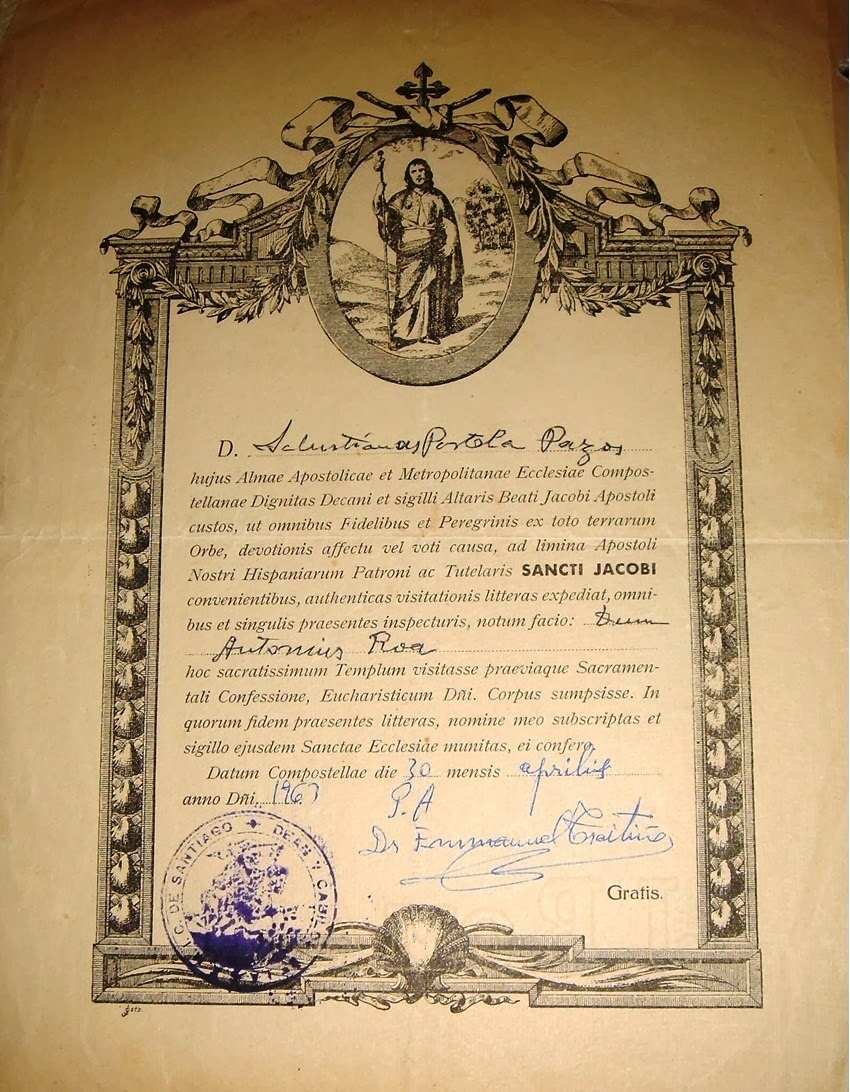 D. Salustianus Portela Pazos
hujus Almae Apostolicae et Metropolitanae Ecclesiae Compos-
tellanae Dignitas Decani et sigilli Altaris Beati Jacobi Apostoli
custos, ut omnibus Fidelibus et Peregrinis ex toto terrarum
Orbe, devotionis affectu vel voti causa, ad limina Apostoli
Nostri Hispaniarum Patroni ac Tutelaris SANCTI JACOBI
convenientibus, authenticas visitationis litteras expediat, omni-
bus et singulis praesentes inspecturis, notum facio:
Antonius Roa
hoc sacratissimum Templum visitasse praeviaque Sacramen-
tali Confessione, Eucharisticum Dñi. Corpus sumpsisse. In
quorum fidem praesentes litteras, nomine meo subscriptas et
sigillo ejusdem Sanctae Ecclesiae munitas, ei confero.
Datum Compostellae die 30 mensis aprilis
anno Dñi. 1963
P.A
Dr Emmanuel
DE SANTIAGO DEAN Y CABILDO
Gratis.